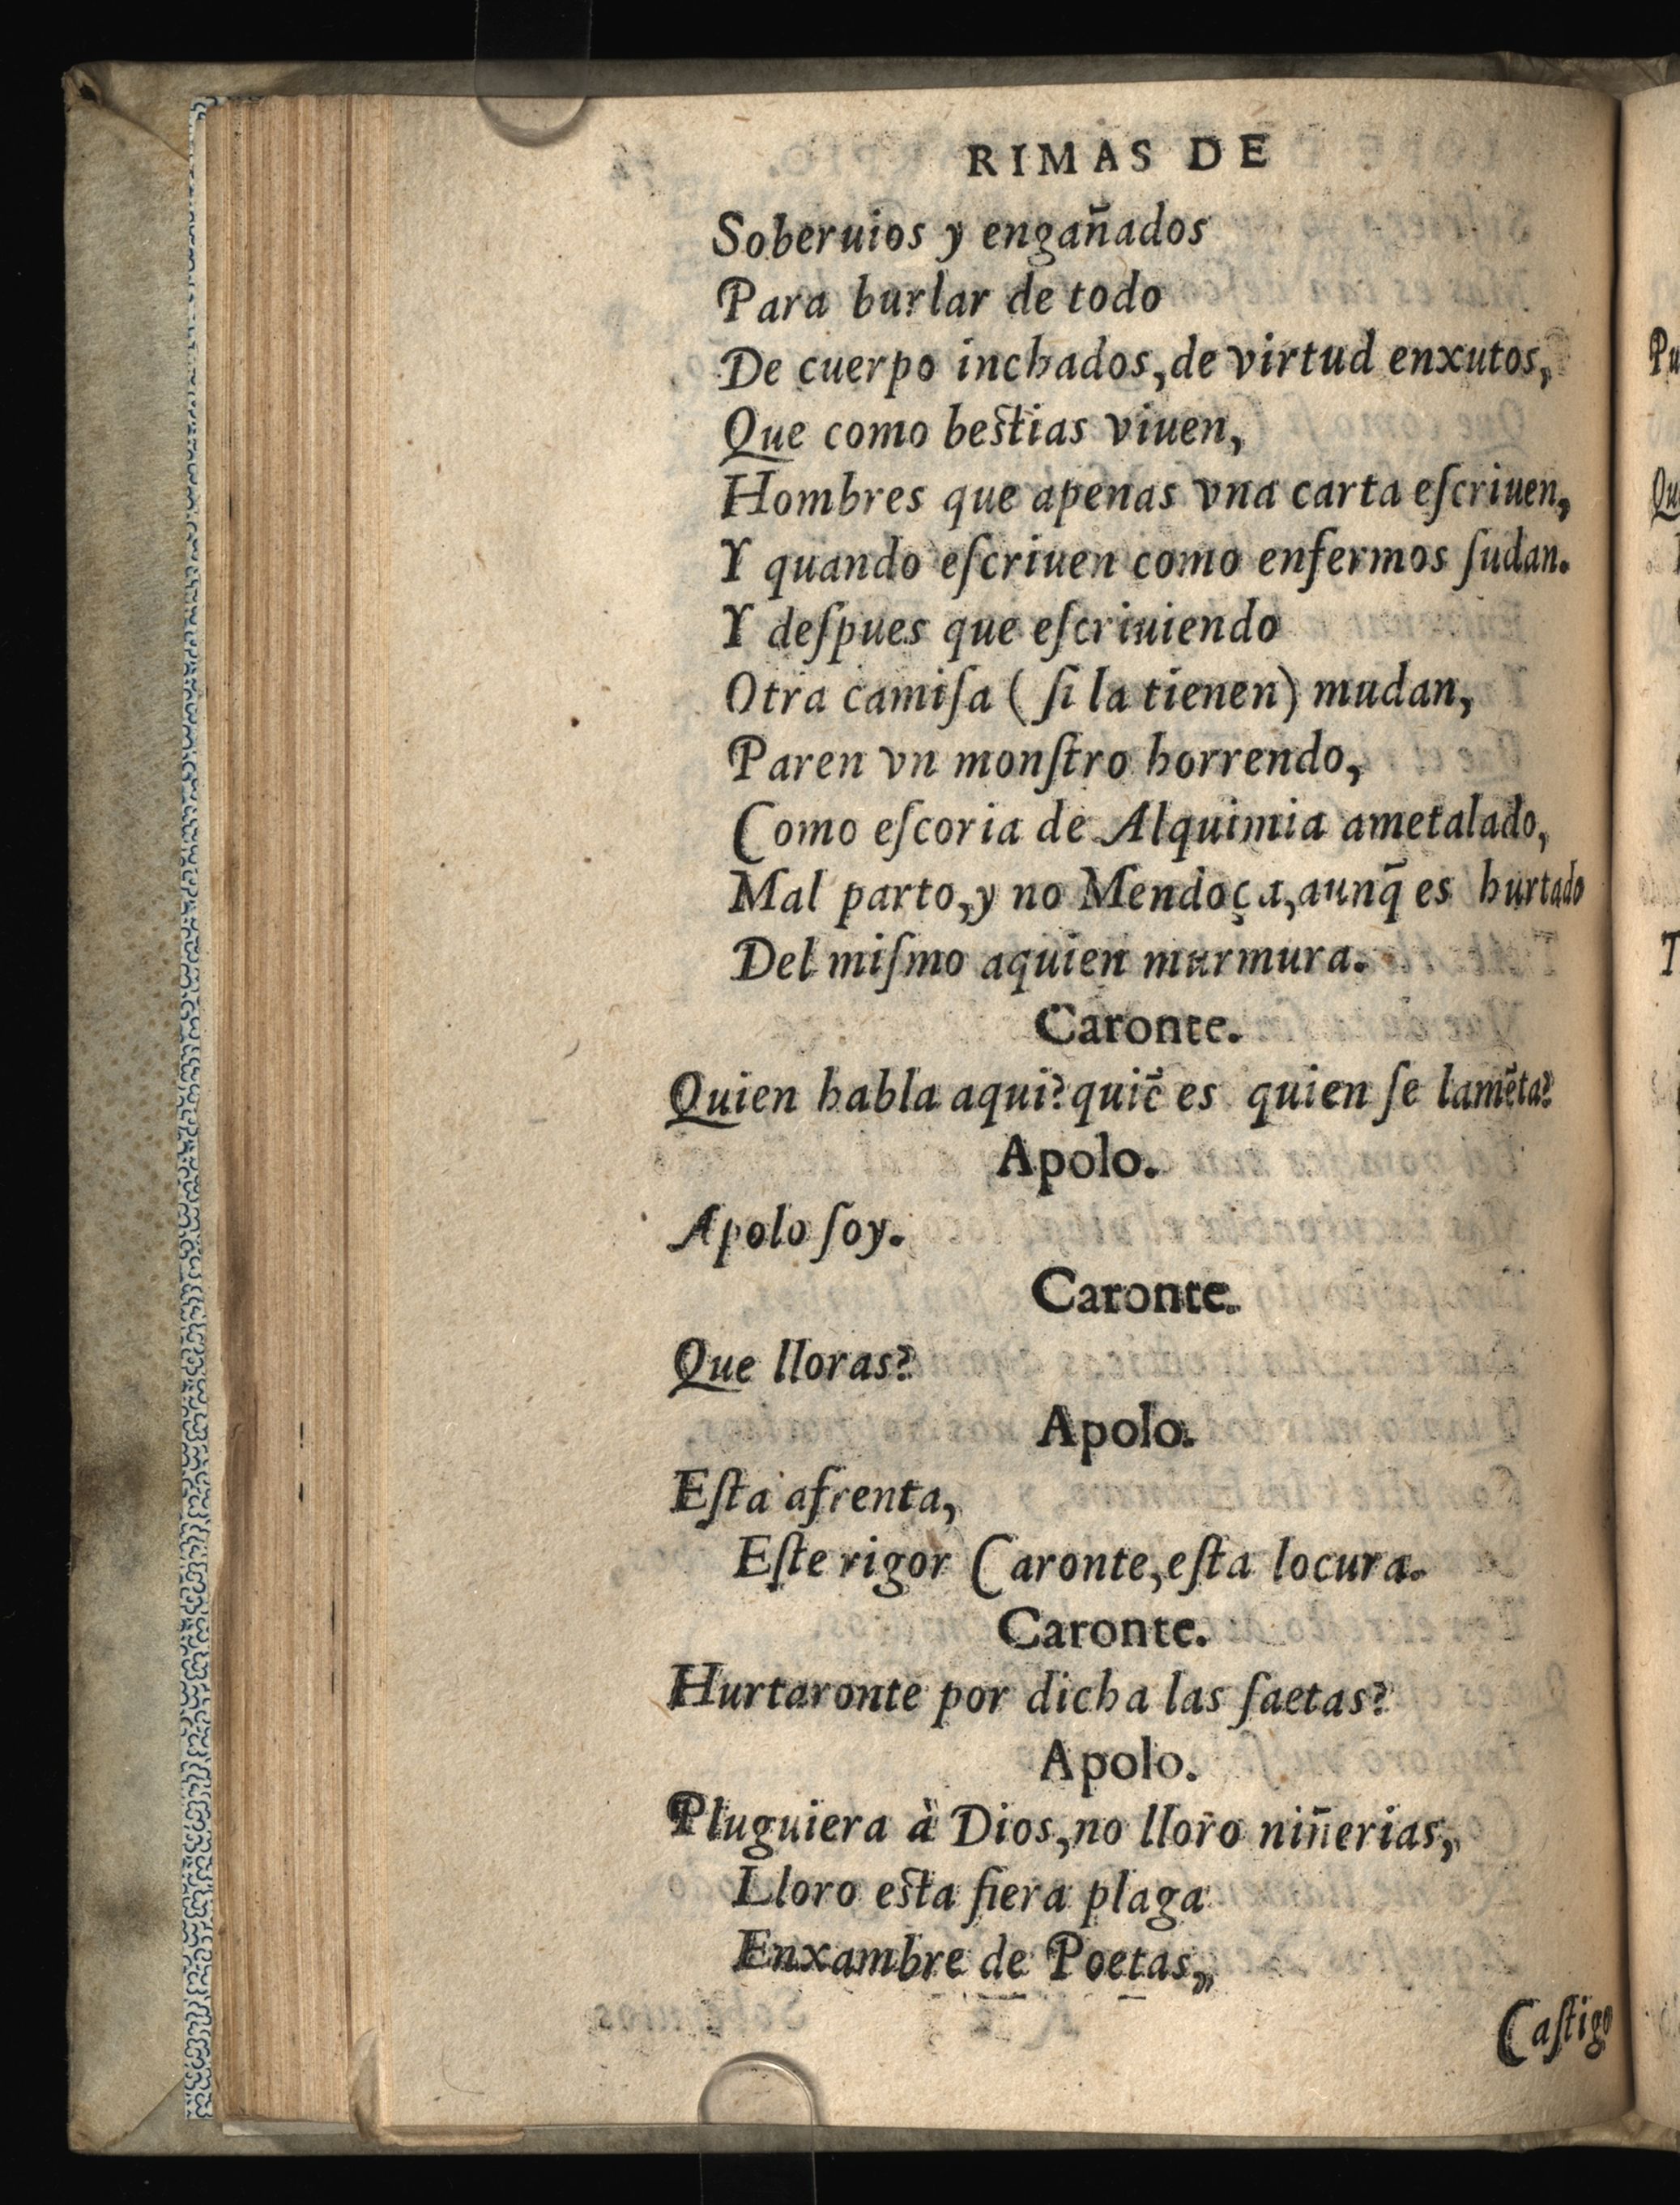 RIMAS DE
Soberuios y engañados
Para burlar de todo
De cuerpo inchados,de virtud enxutos,
Que como bestias viuen,
Hombres que apenas vna carta eſcriuen,
Y quando eſcriuen como enfermos ſudan.
Y deſpues que eſcriuiendo
Otra camiſa ( ſi la tienen) mudan,
Paren vn monſtro horrendo,
Como eſcoria de Alquimia ametalado,
Mal parto,y no Mendoça,aunq̃ es hurtado
Del miſmo aquien murmura.
Caronte.
Quien habla aqui?quiẽ es quien ſe lamẽta?
Apolo.
Apolo ſoy.
Caronte.
Que lloras?
Apolo.
Eſta afrenta,
Eſte rigor Caronte,eſta locura.
Caronte.
Hurtaronte por dicha las ſaetas?
Apolo.
Pluguiera à Dios,no lloro niñerias,
Lloro esta fiera plaga
Enxambre de Poetas,
Caſtigo